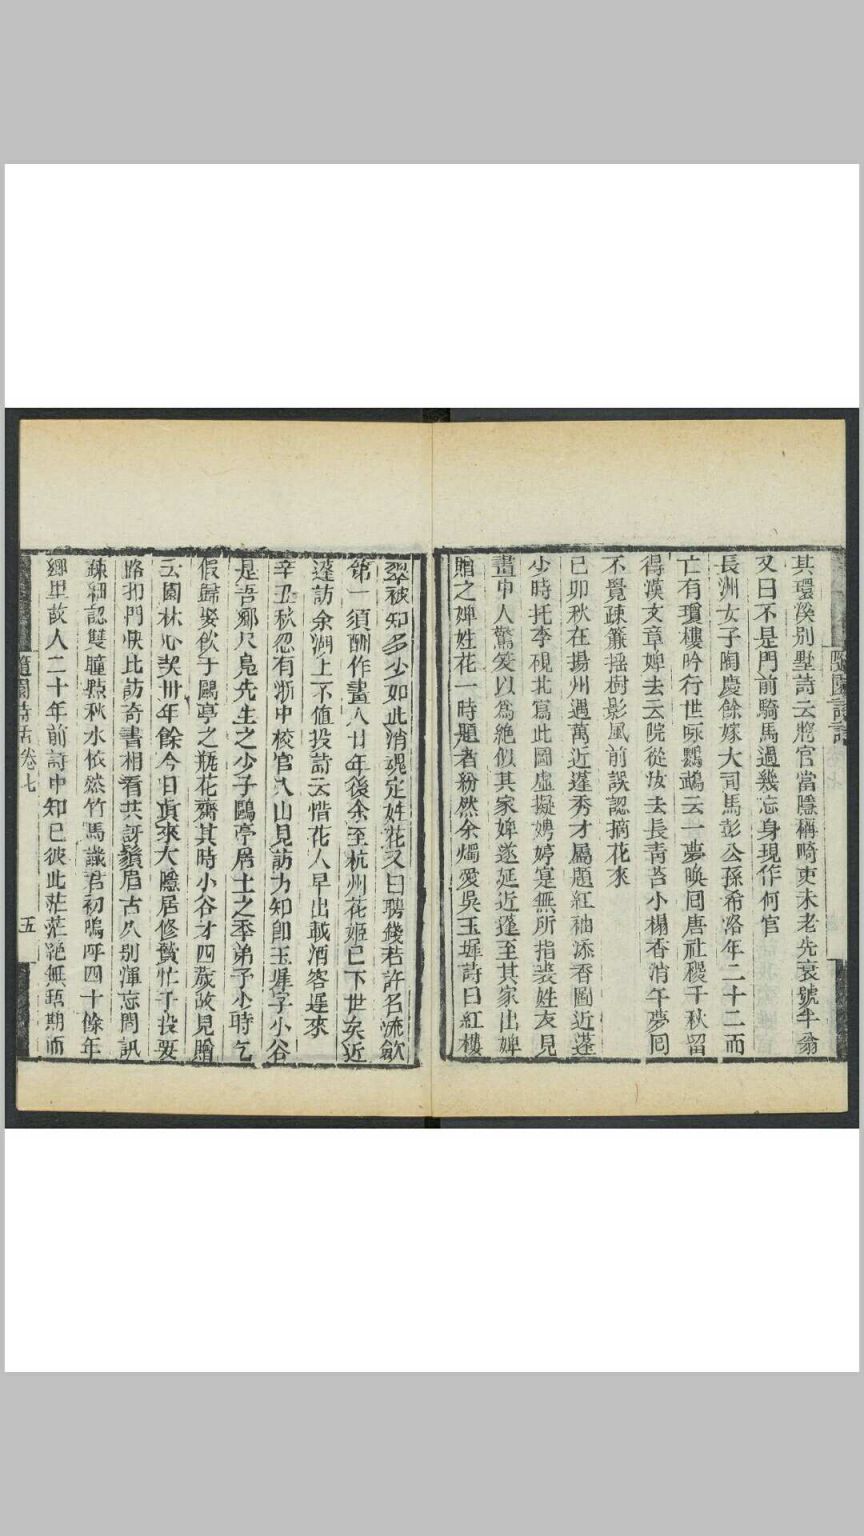 其環溪別墅詩云將官當隱稱畸吏未老先衰號半翁
又曰不是門前騎馬過幾忘身現作何官
長洲女子陶慶餘嫁大司馬彭公孫希洛年二十二而
亡有瓊樓吟行世咏鸚鵡云一夢喚回唐社稷千秋留
得漢文章婢去云院從汝去長青苔小榻香消午夢回
不覺疎簾搖樹影風前誤認摘花來
己卯秋在揚州遇萬近蓬秀才屬題紅袖添香圖近蓬
少時托李硯北寫此圖虛擬娉婷寔無所指裴姓友見
畫中人驚笑以為絶似其家婢遂延近蓬至其家出婢
贈之婢姓花一時題者紛然余獨愛吳玉墀詩曰紅樓
翠被知多少如此消魂定姓花又曰聘錢若許名流歛
第一須酬作畫人廿年後余至杭州花姬已下世矣近
蓬訪余湖上不值投詩云惜花人早出載酒客遲來
辛丑秋忽有浙中校官入山見訪方知即玉墀字小谷
是吾鄉尺鳧先生之少子鷗亭居士之季弟予少時乞
假歸娶飲于鷗亭之瓶花齋其時小谷才四歲故見贈
云園林心契卅年餘今日真來大隱居修贄忙于投要
路扣門快比訪奇書相看共訝鬚眉古久別渾忘問訊
疎細認雙瞳點秋水依然竹馬識君初嗚呼四十餘年
鄉里故人二十年前詩中知已彼此茫茫絶無聞期而
隨園詩話卷七
五